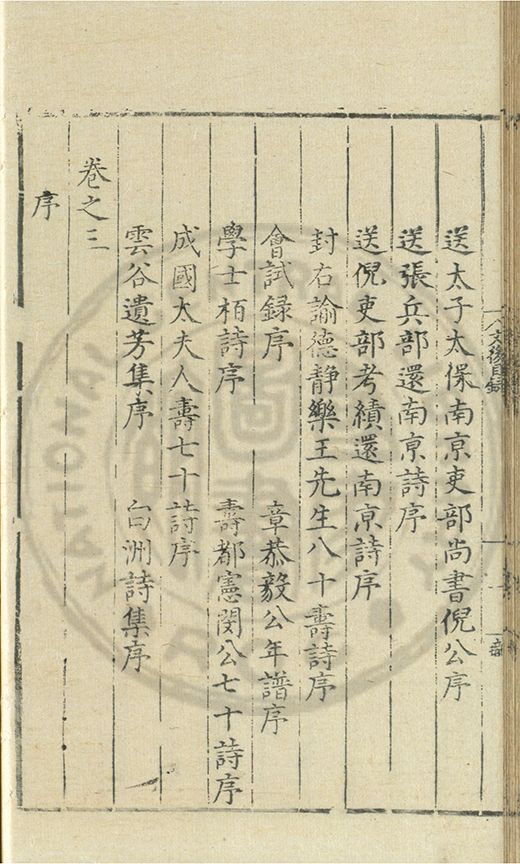 文後目錄
送太子太保南京吏部尚書倪公序
送張兵部還南京詩序
送倪吏部考績還南京詩序
封右諭德靜樂王先生八十壽詩序
會試錄序 章恭毅公年譜序
學士栢詩序 壽都憲閔公七十詩序
成國太夫人壽七十詩序
雲谷遺芳集序 白洲詩集序
卷之三
序